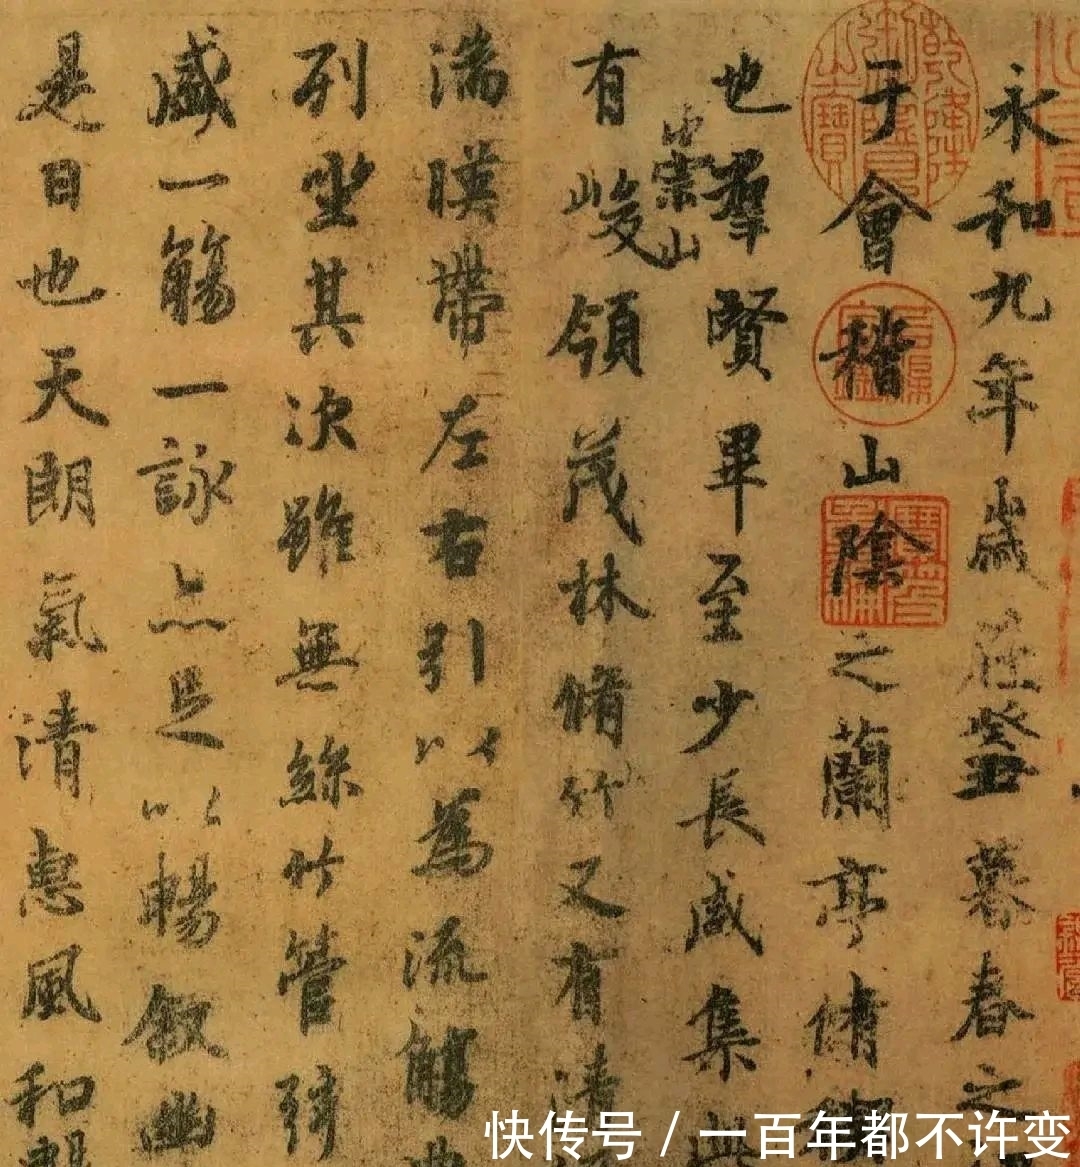 永和九年歲在癸丑暮春之
于會稽山陰之蘭亭脩禊
也羣賢畢至少長咸集此
有崇山峻領茂林脩竹又有清
湍暎帶左右引以為流觴曲
列坐其次雖無絲竹管弦
盛一觴一詠亦足以暢敘幽
是日也天朗氣清惠風和暢
快传号 / 一百年都不许变